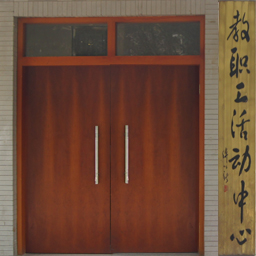 教职工活动中心